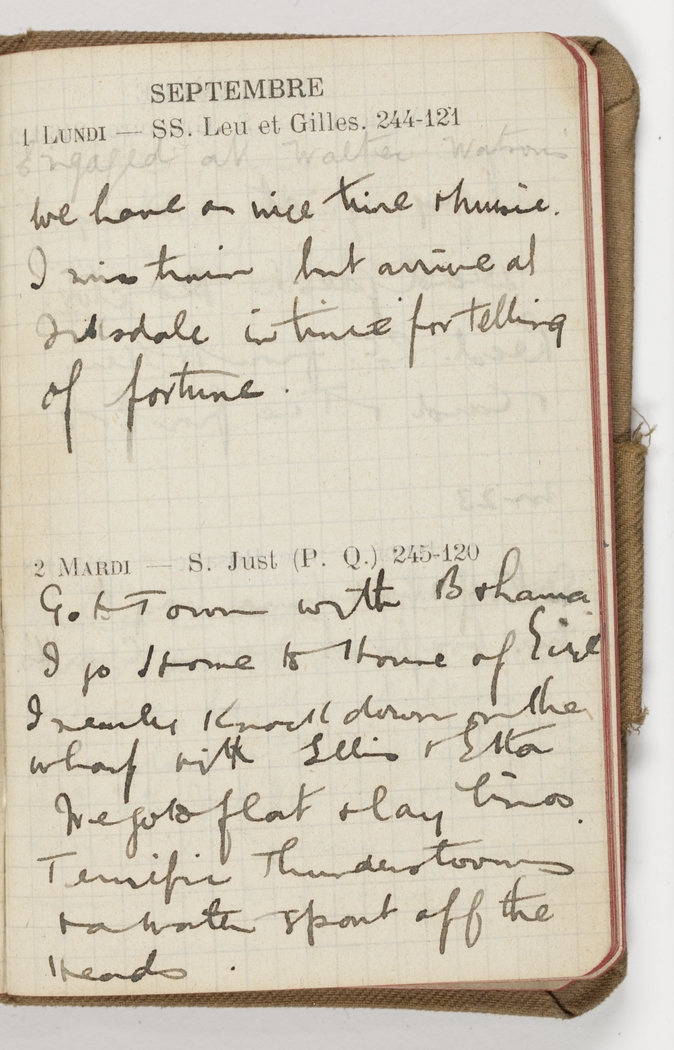 SEPTEMBRE
1 LUNDI — SS. Leu et Gilles. 244-121
Engaged at Walter Watson's
We have a nice time & music.
I miss train but arrive at
in time for telling
of fortune.
2 MARDI — S. Just (P. Q.) 245-120
Go to Town with B & hama
I go Home to House of
I nearly Knock down on the
wharf with Ellis & Etta
We go to flat & lay linos.
Terrific Thunderstorms
& a water spout off the
Heads.